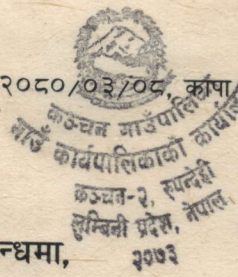 २०८०/०३/०८, काषा
कञ्चन गाउँपालिका
गाउँ कार्यपालिकाको कार्यालय
कञ्चन-२, रुपन्देही
लुम्बिनी प्रदेश, नेपाल
२०७३
न्धमा,